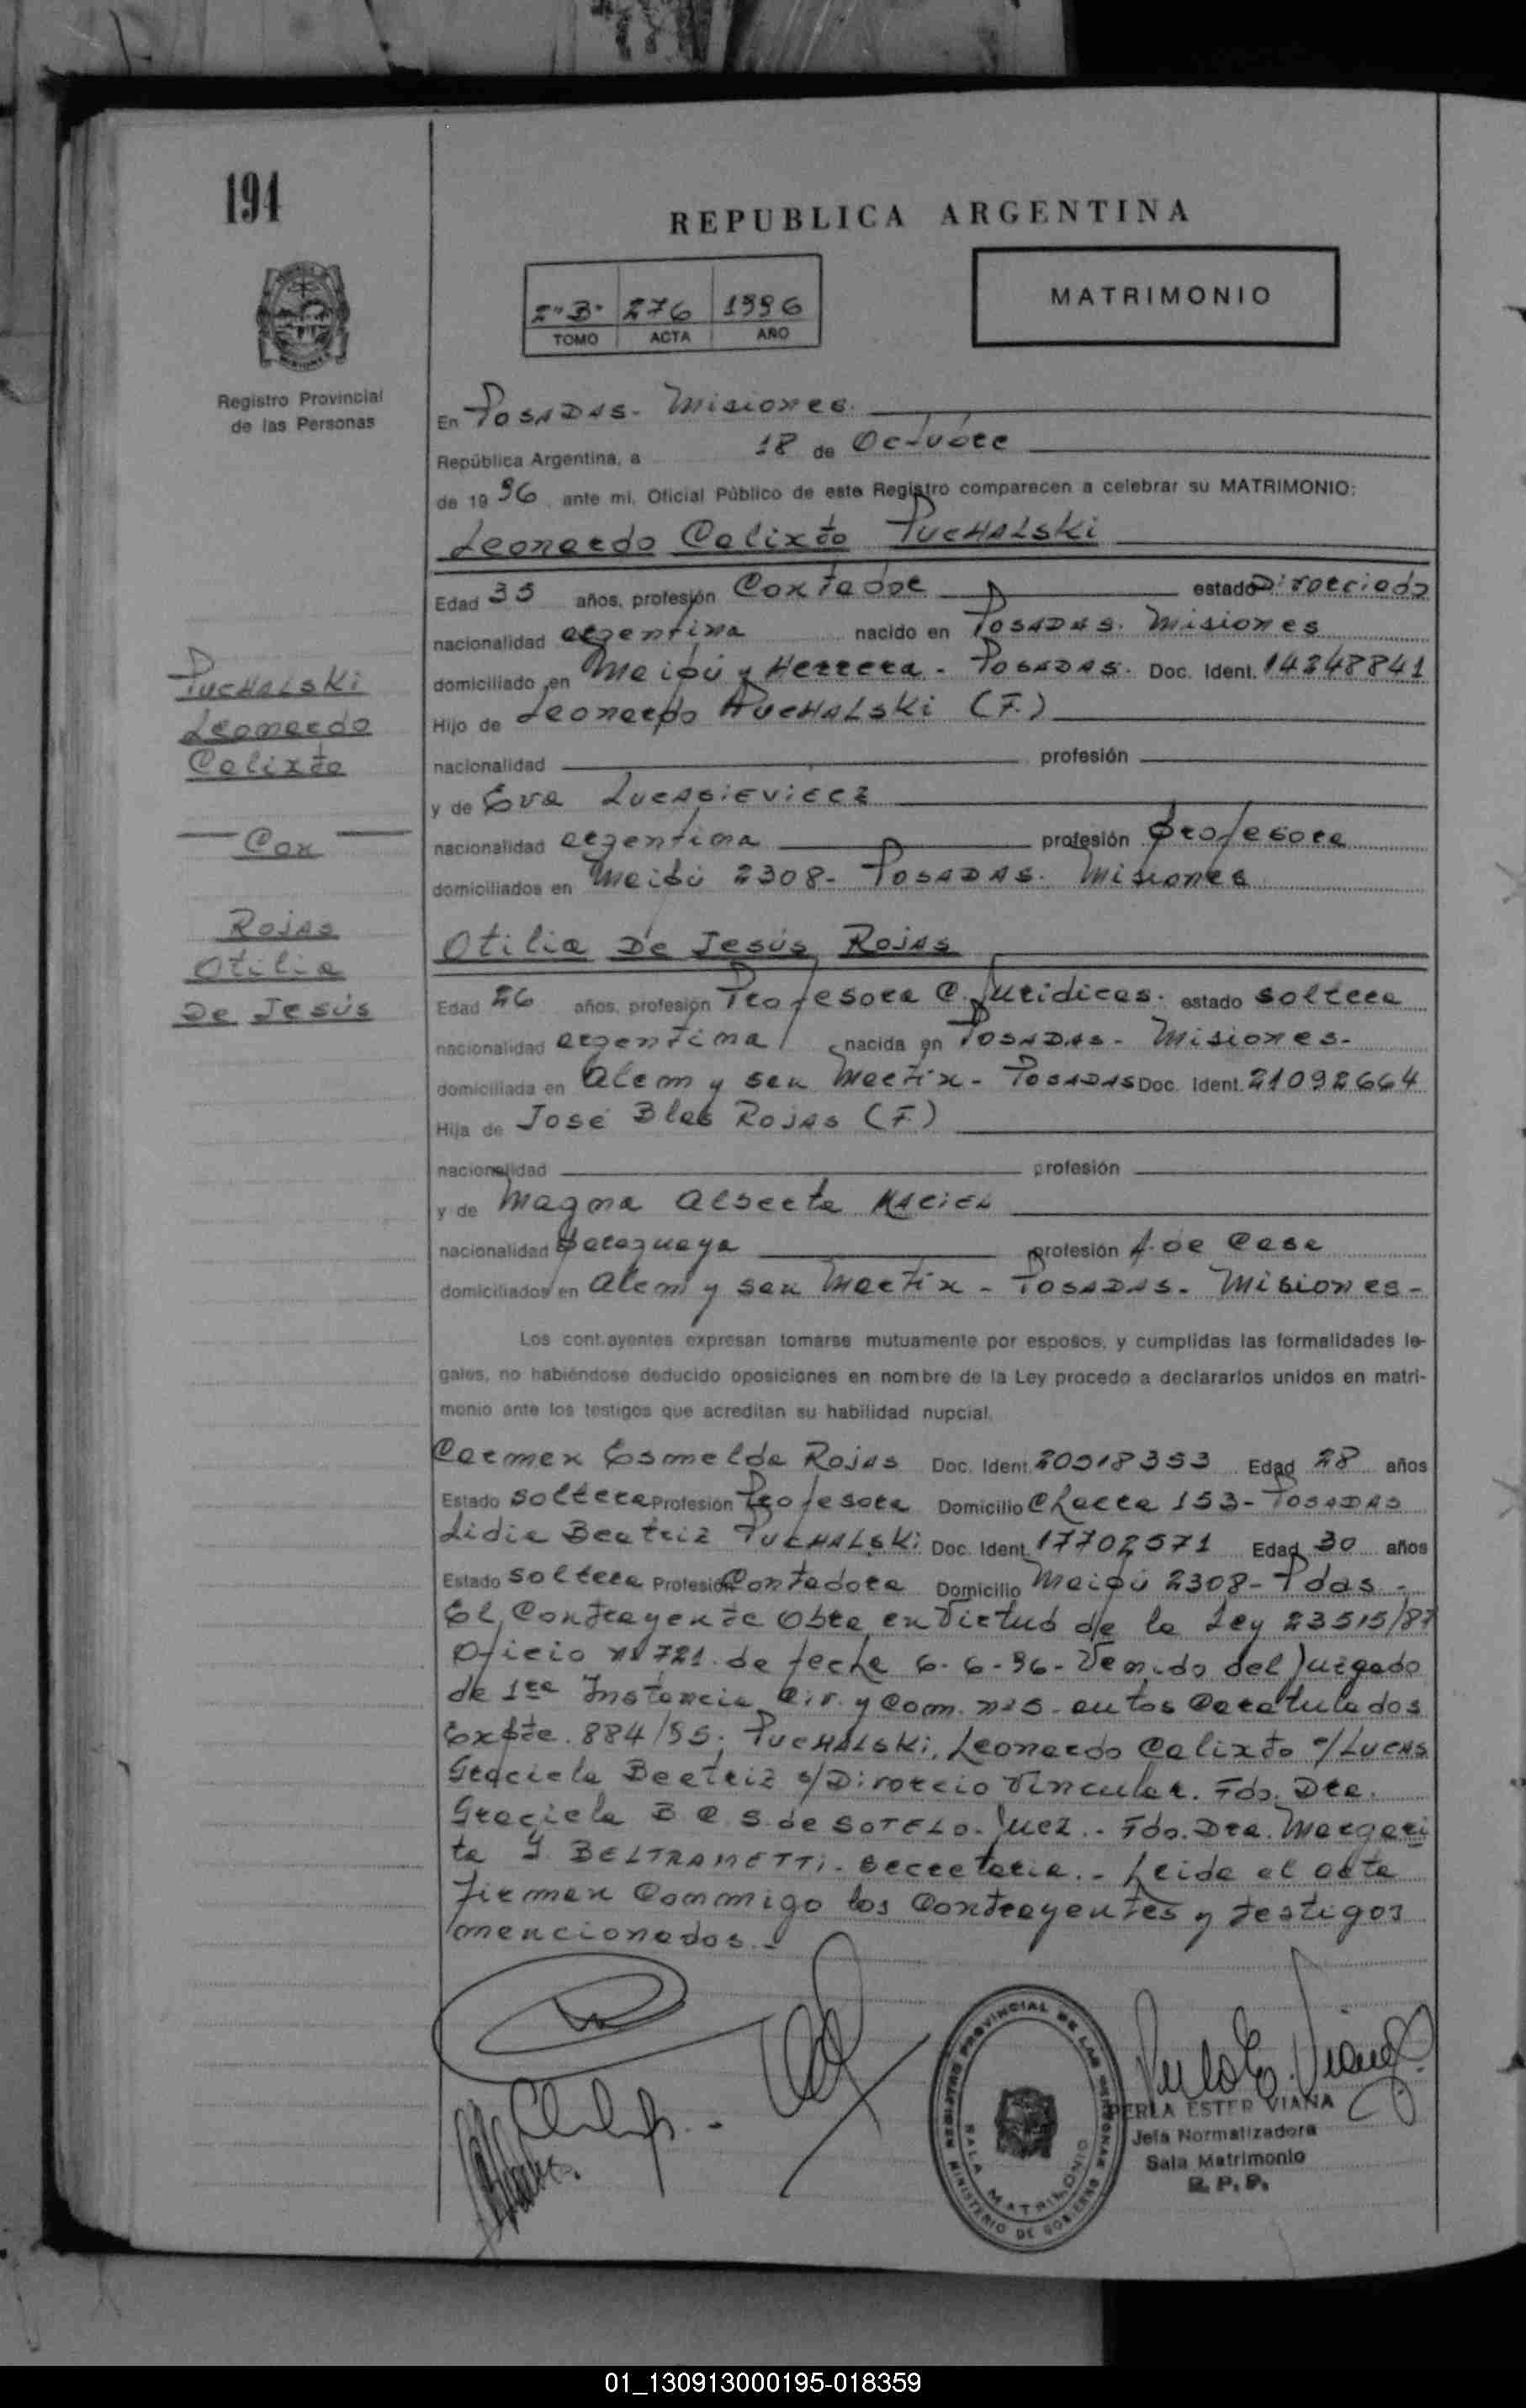 194
REPUBLICA ARGENTINA
2º"B" 276 1996
TOMO ACTA AÑO
MATRIMONIO
Registro Provincial
de las Personas
En POSADAS - Misiones.
República Argentina, a 18 de Octubre
de 1996, ante mi, Oficial Público de este Registro comparecen a celebrar su MATRIMONIO:
Leonardo Calixto PUCHALSKi
Edad 35 años, profesión Contador estado Divorciado
nacionalidad argentina nacido en POSADAS. Misiones
domiciliado en Maipú y Herrera - POSADAS. Doc. Ident. 14248841
Hijo de Leonardo PUCHALSKi (F.)
nacionalidad profesión
y de Eva LUCASiEViECZ
nacionalidad argentina profesión profesora
domiciliados en Maipú 2308 - POSADAS. Misiones
PUCHALSKi
Leonardo
Calixto
Con
ROJAS
Otilia
De Jesús
Otilia De Jesús ROJAS
Edad 26 años, profesión Profesora C. Jurídicas. estado soltera
nacionalidad argentina nacida en POSADAS - Misiones -
domiciliada en Alem y san Martín - POSADAS Doc. Ident. 21092664
Hija de José Blas ROJAS (F.)
nacionalidad profesión
y de Magna Alberta MACIEL
nacionalidad paraguaya profesión A. de Casa
domiciliados en Alem y san Martín - POSADAS - Misiones -
Los contrayentes expresan tomarse mutuamente por esposos, y cumplidas las formalidades le-
gales, no habiéndose deducido oposiciones en nombre de la Ley procedo a declararlos unidos en matri-
monio ante los testigos que acreditan su habilidad nupcial.
Carmen Esmelda ROJAS Doc. Ident. 20518353 Edad 28 años
Estado soltera Profesión Profesora Domicilio Chacra 153 - POSADAS
Lidia Beatriz PUCHALSKi Doc. Ident. 17702571 Edad 30 años
Estado soltera Profesión Contadora Domicilio Maipú 2308 - Pdas -
El Contrayente Obra en Virtud de la Ley 23515/87
Oficio nº 721 de fecha 6-6-96 - Venido del Juzgado
de 1ra Instancia Civ. y Com. nº 5 - autos Caratulados
Expte. 884/95; PUCHALSKi, Leonardo Calixto c/ LUCAS
Graciela Beatriz s/ Divorcio Vincular. Fdo. Dra.
Graciela B C. S. de SOTELO - Juez. - Fdo. Dra. Margari
ta Y. BELTRAMETTi - secretaria. - Leída el acta
firman Conmigo los Contrayentes y testigos
mencionados. -
REGISTRO PROVINCIAL DE LAS PERSONAS
SALA MATRIMONIO
MINISTERIO DE GOBIERNO
PERLA ESTER VIANA
Jefa Normalizadora
Sala Matrimonio
R. P. P.
01_130913000195-018359